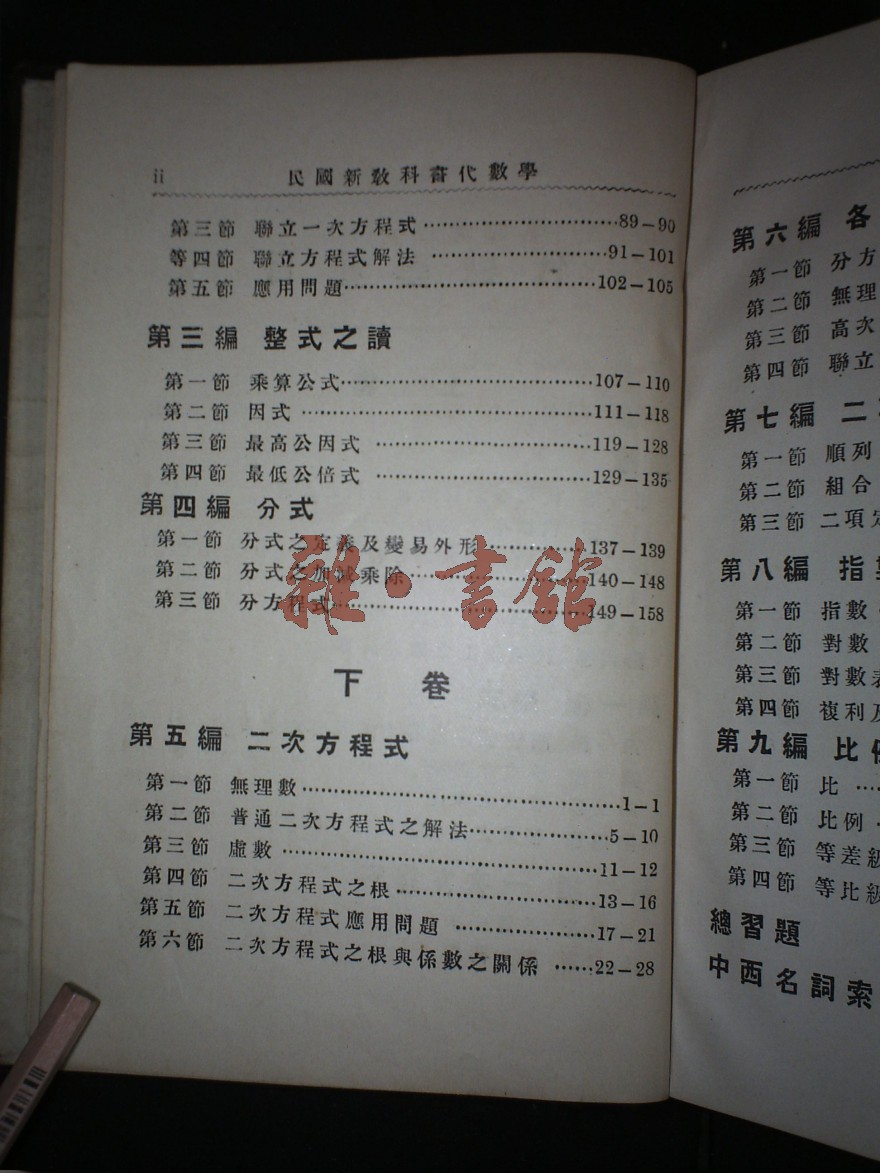 ii 民國新教科書代數學
第三節 聯立一次方程式………………………89－90
等四節 聯立方程式解法 ……………………91－101
第五節 應用問題………………………………102－105
第三編 整式之讀
第一節 乘算公式………………………………107－110
第二節 因式 …………………………………111－118
第三節 最高公因式 …………………………119－128
第四節 最低公倍式 …………………………129－135
第四編 分式
第一節 分式之定義及變易外形……………137－139
第二節 分式之加減乘除……………………140－148
第三節 分方程式……………………………149－158
雜·書館
下 卷
第五編 二次方程式
第一節 無理數…………………………………1－1
第二節 普通二次方程式之解法………………5－10
第三節 虛數……………………………………11－12
第四節 二次方程式之根………………………13－16
第五節 二次方程式應用問題 …………………17－21
第六節 二次方程式之根與係數之關係 ……22－28
第六編 各
第一節 分方
第二節 無理
第三節 高次
第四節 聯立
第七編 二
第一節 順列
第二節 組合
第三節 二項定
第八編 指
第一節 指數
第二節 對數
第三節 對數表
第四節 複利及
第九編 比
第一節 比 …
第二節 比例
第三節 等差級
第四節 等比級
總習題
中西名詞索